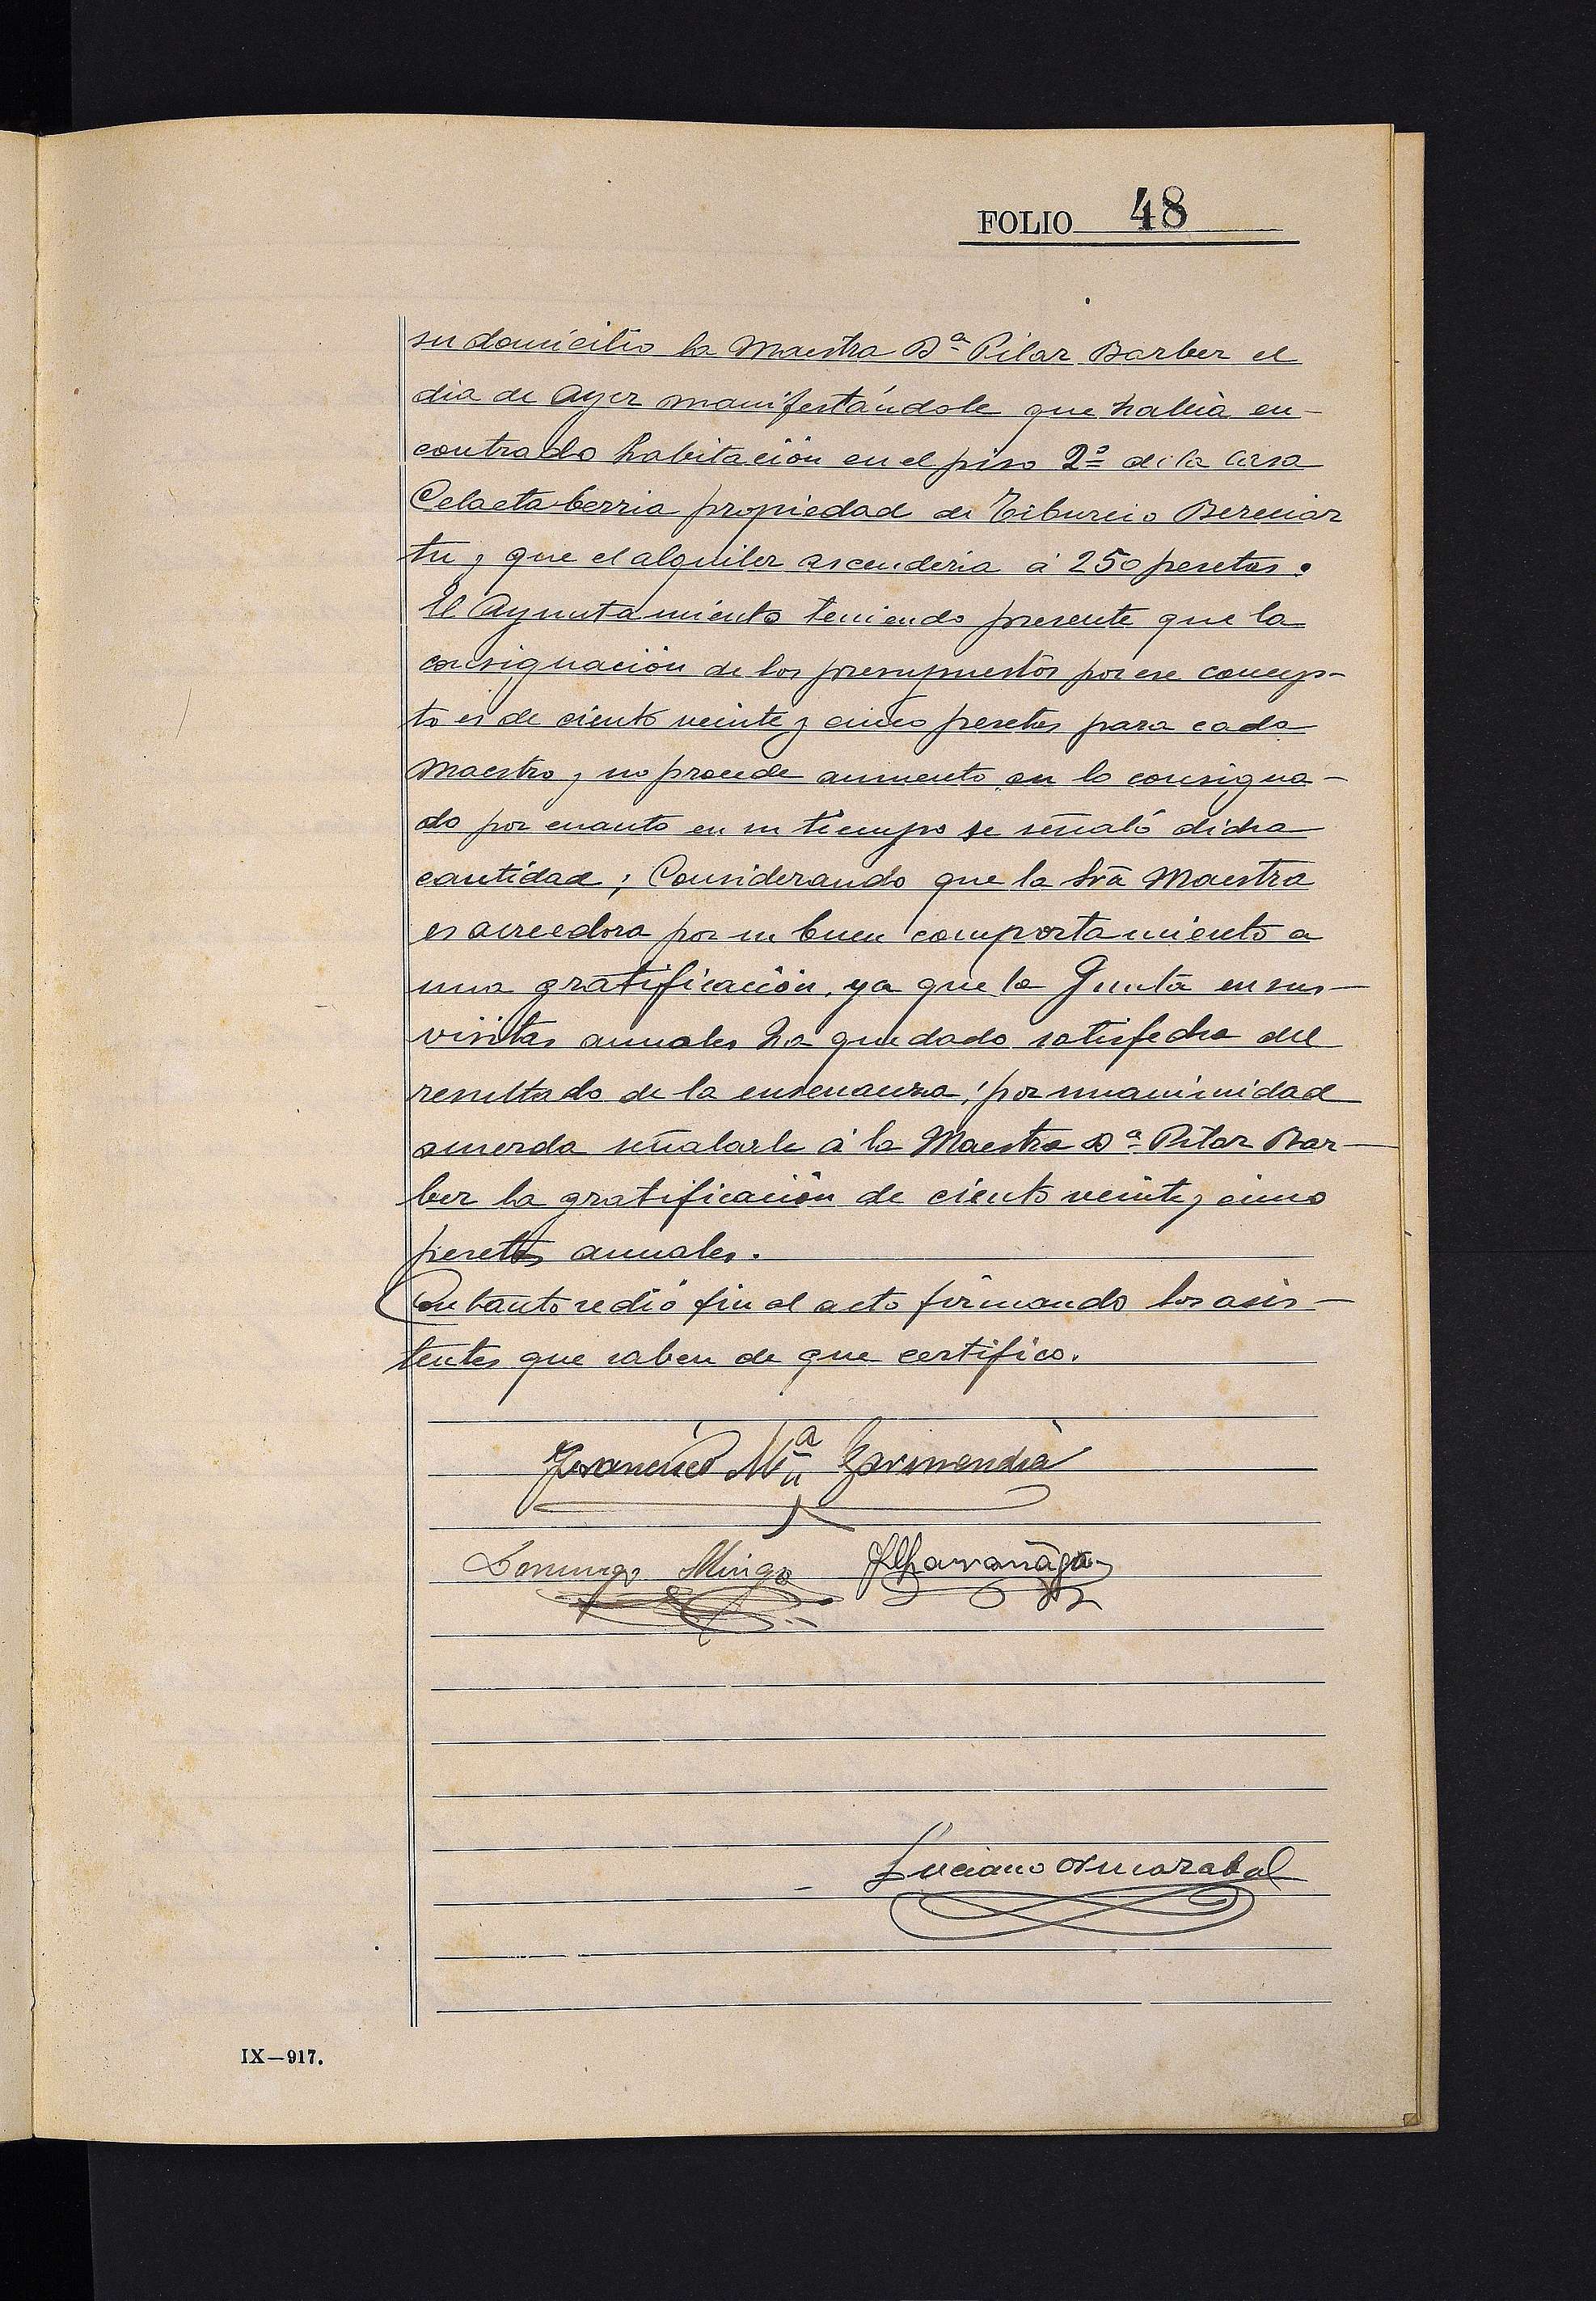 FOLIO 48
su domicilio la Maestra Dª Pilar Barber el
dia de ayer manifestándole que habia en-
contrado habitación en el piso 2º de la casa
Celaeta berria propiedad de Tiburcio Bereciar
tu, que el alquiler ascenderia á 250 pesetas.
El Ayuntamiento teniendo presente que la
consignación de los presupuestos por ese concep-
to es de ciento veinte y cinco pesetas para cada
Maestro, no procede aumento en lo consigna-
do por cuanto en su tiempo se señaló dicha
cantidad; Considerando que la Srª Maestra
es acreedora por su buen comportamiento a
una gratificación, ya que la Junta en sus
visitas anuales ha quedado satisfecha del
resultado de la ensenanza; por unanimidad
acuerda señalarle á la Maestra Dª Pilar Bar-
ber la gratificación de ciento veinte y cinco
pesetas anuales.
En tanto se dió fin al acto firmando los asis-
tentes que saben de que certifico.
Francisco Mª Garmendia
Domingo Mingo
Luciano Ormazabal
IX—917.